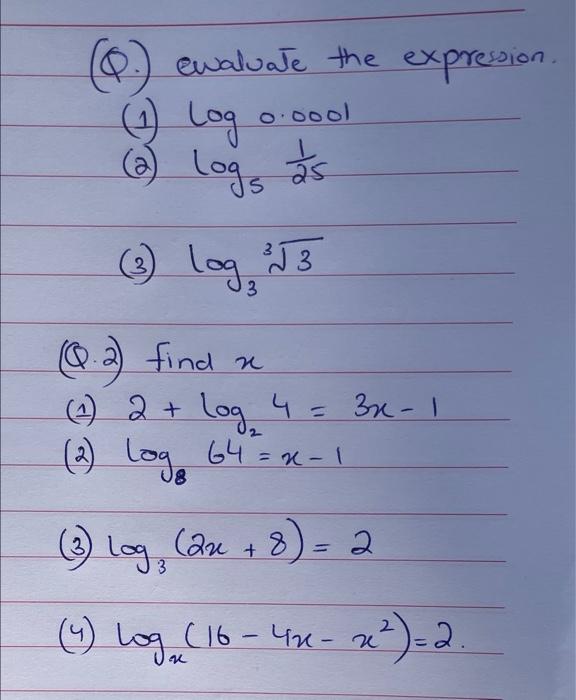 (Q.) ewaluate the expression.
(1) log 0.0001
(2) log₅ 1/25
(3) log₃ ³√3
(Q.2) find x
(1) 2 + log₂ 4 = 3x - 1
(2) log₈ 64 = x - 1
(3) log₃ (2x + 8) = 2
(4) logₓ (16 - 4x - x²) = 2.